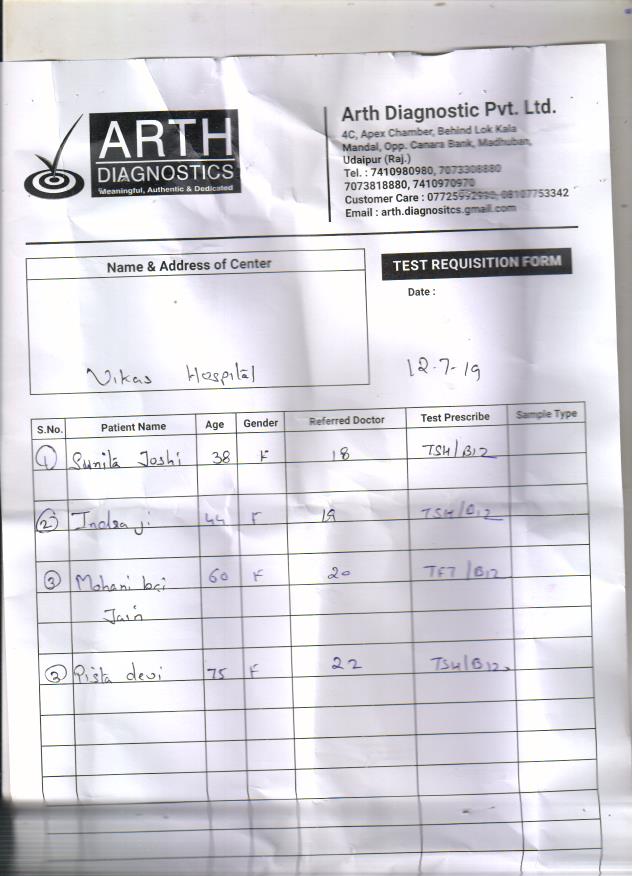 ARTH
DIAGNOSTICS
Meaningful, Authentic & Dedicated
Arth Diagnostic Pvt. Ltd.
4C, Apex Chamber, Behind Lok Kala
Mandal, Opp. Canara Bank, Madhuban,
Udaipur (Raj.)
Tel. : 7410980980, 7073308880
7073818880, 7410970970
Customer Care : 07725992990, 08107753342
Email : arth.diagnositcs.gmail.com
Name & Address of Center
TEST REQUISITION FORM
Date :
Vikas Hospital
12-7-19
S.No. Patient Name Age Gender Referred Doctor Test Prescribe Sample Type
1 Sunita Joshi 38 F 18 TSH/B12
2 Indra ji 44 F 19 TSH/B12
3 Mohani bai 60 F 20 TFT/B12
Jain
3 Pista devi 75 F 22 TSH/B12